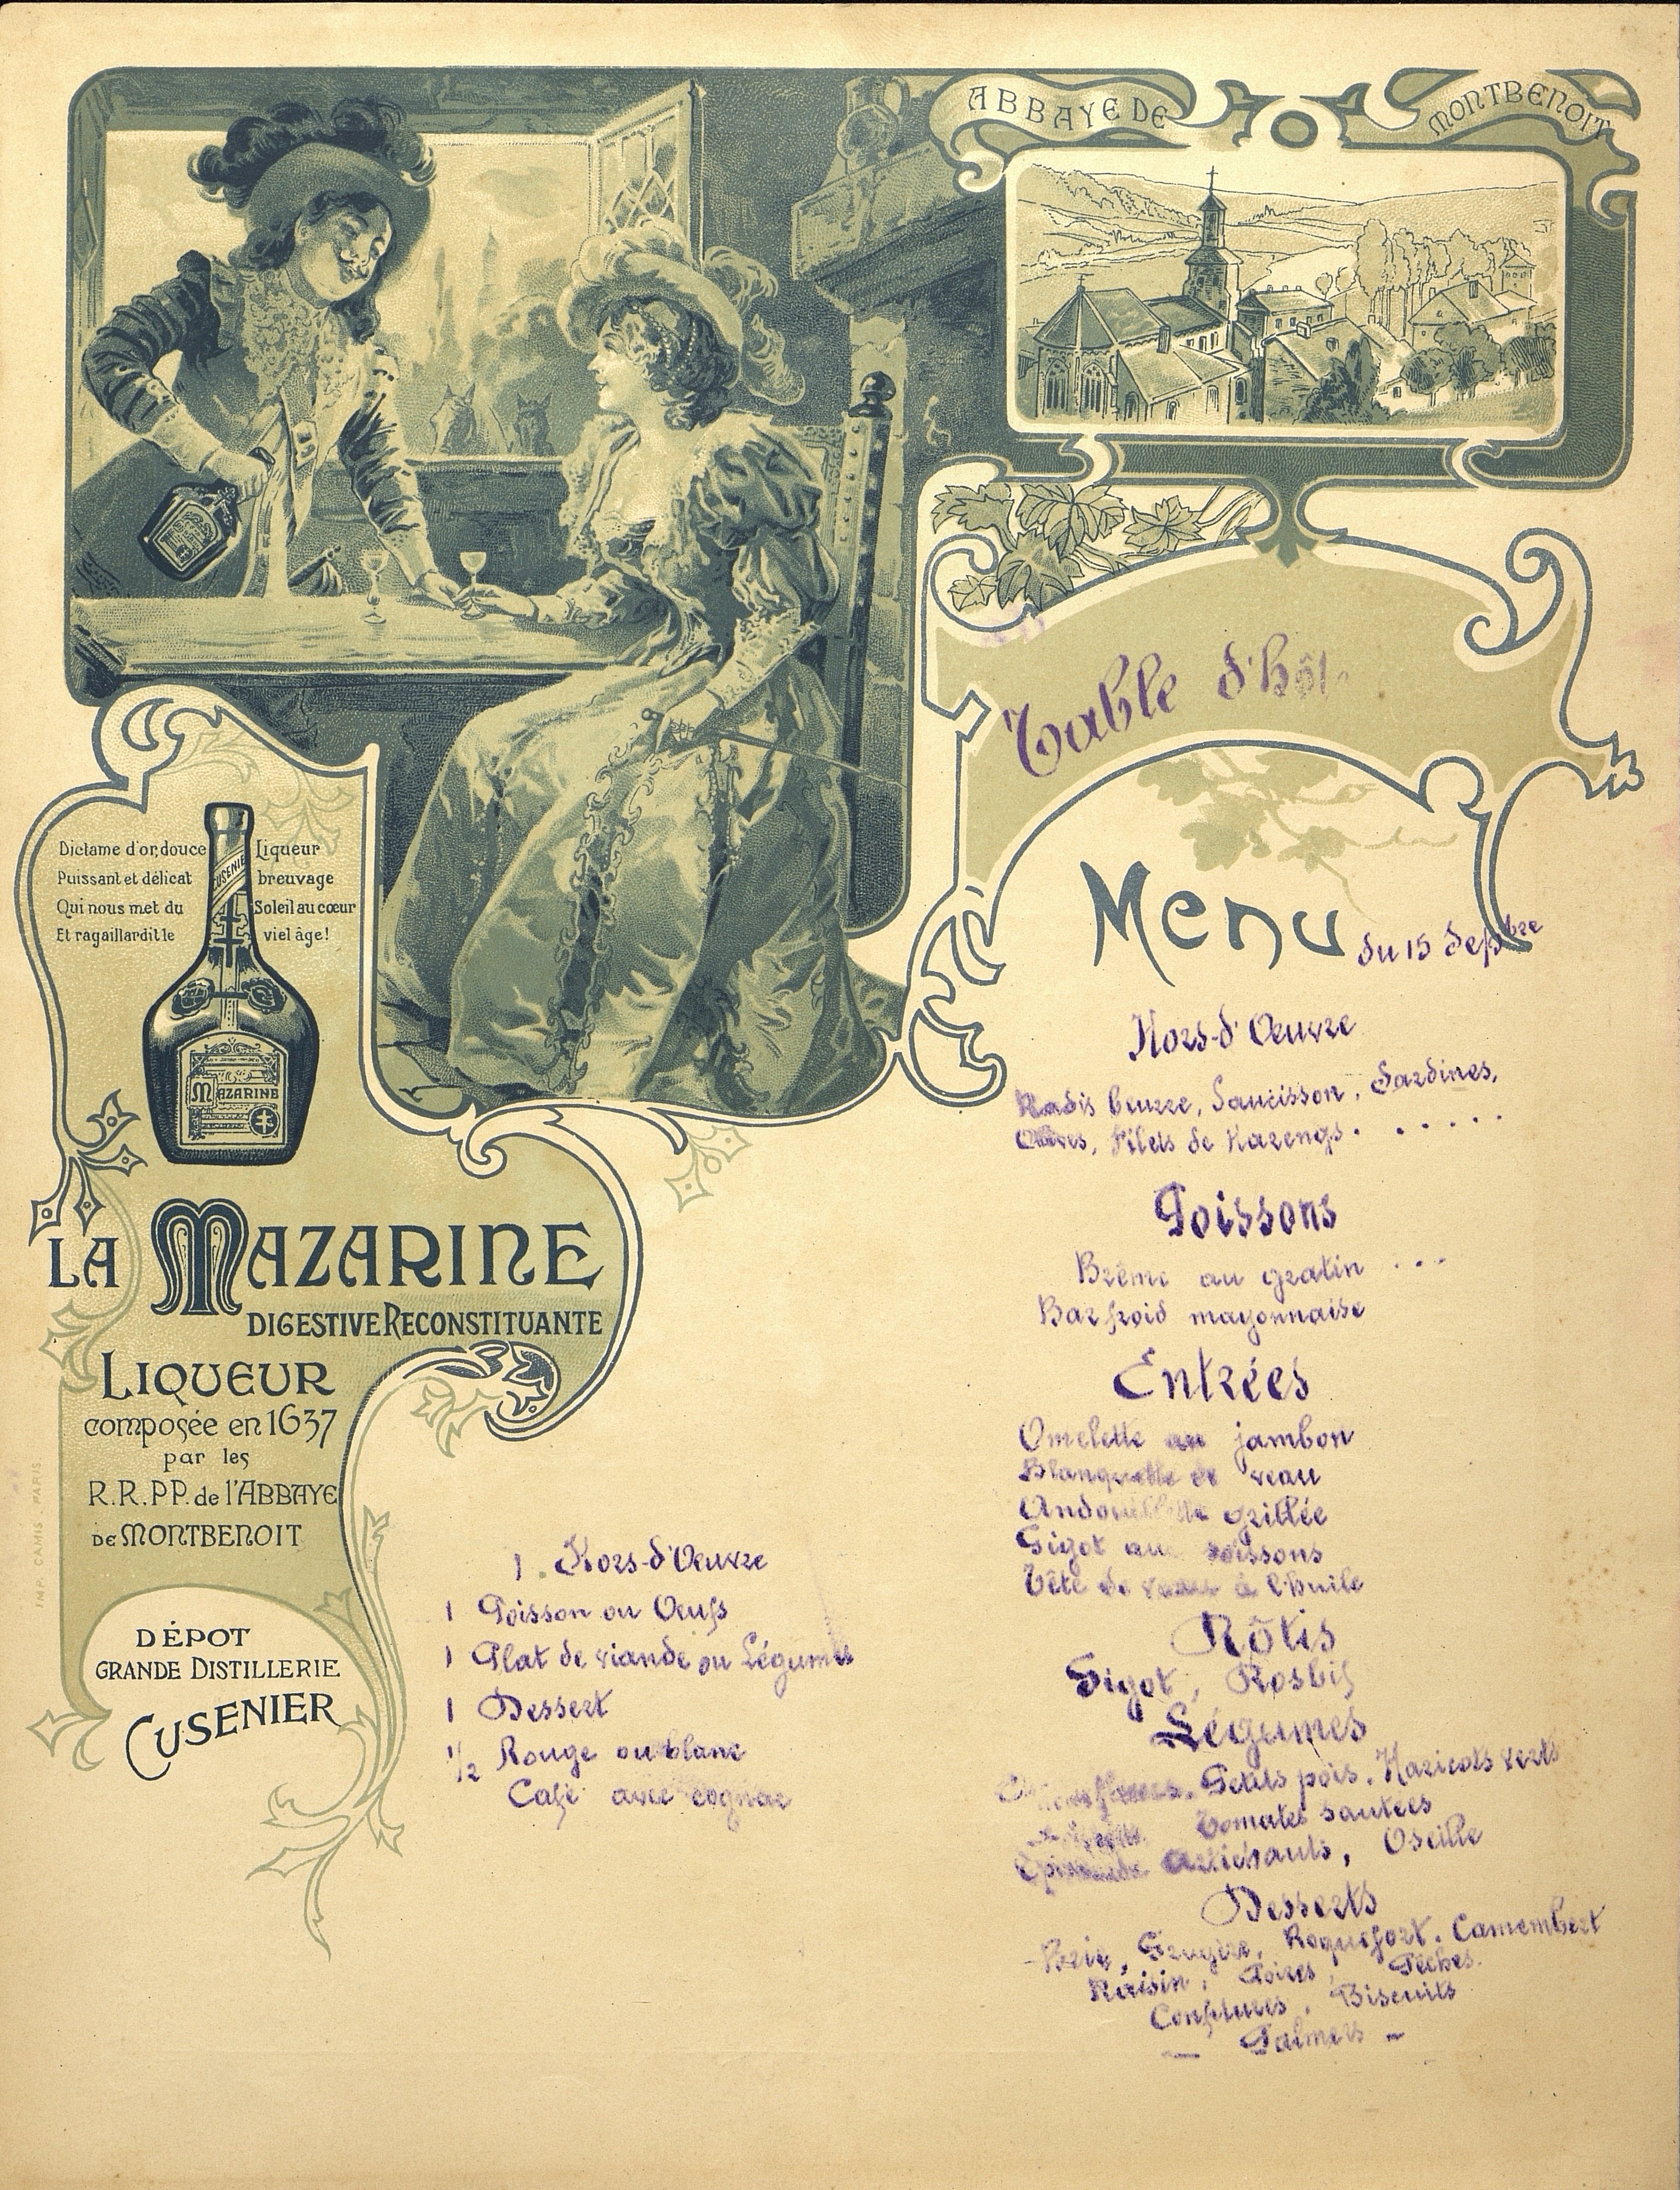 ABBAYE DE MONTBENOIT
Table d'hôt
Menu du 15 Septbre
Dictame d'or, douce Liqueur
Puissant et délicat breuvage
Qui nous met du Soleil au cœur
Et ragaillardit le viel âge!
CUSENIE
MAZARINE
LA MAZARINE
DIGESTIVE RECONSTITUANTE
LIQUEUR
composée en 1637
par les
R.R.PP. de l'ABBAYE
DE MONTBENOIT
IMP. CAMIS. PARIS
DÉPOT
GRANDE DISTILLERIE
CUSENIER
1 . Hors-d'Oeuvre
1 Poisson ou Oeufs
1 Plat de viande ou Légumes
1 Dessert
1/2 Rouge ou blanc
Café avec cognac
Hors-d'Oeuvre
Radis beurre, Saucisson, Sardines,
Olives, Filets de Harengs . . . . . .
Poissons
Brême au gratin . . .
Bar froid mayonnaise
Entrées
Omelette au jambon
Blanquette de veau
Andouillette grillée
Gigot aux soissons
Tête de veau à l'huile
Rôtis
Gigot, Rosbif
Légumes
Petits pois. Haricots verts
Tomates sautées
Artichauts, Oseille
Desserts
Brie, Gruyère, Roquefort. Camembert
Raisin, Poires, Pêches.
Confitures, Biscuits
— Palmers —